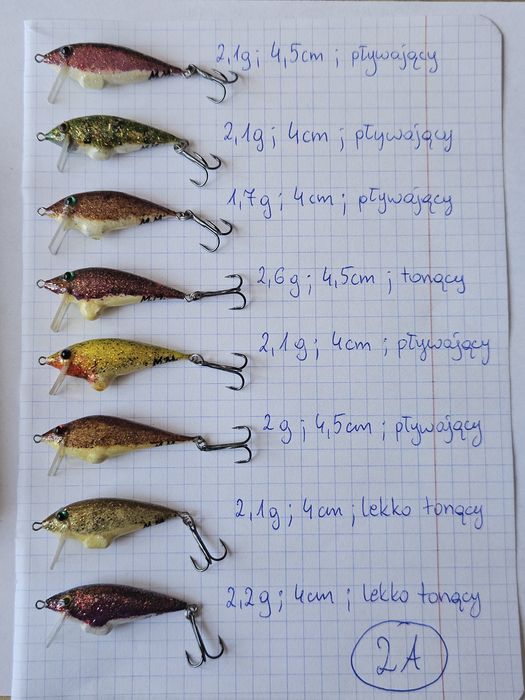 2,1g ; 4,5cm ; pływający
2,1g ; 4cm ; pływający
1,7g ; 4cm ; pływający
2,6g ; 4,5cm ; tonący
2,1g ; 4cm ; pływający
2g ; 4,5cm ; pływający
2,1g ; 4cm ; lekko tonący
2,2g ; 4cm ; lekko tonący
2A